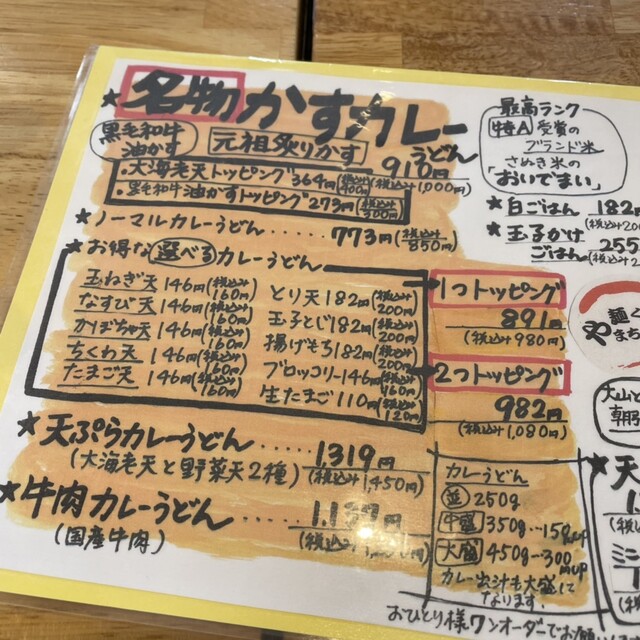 ★名物かすカレーうどん
黒毛和牛油かす
元祖炙りかす
910円
(税込み1,000円)
・大海老天トッピング364円(税込み400円)
・黒毛和牛油かすトッピング273円(税込み300円)
★ノーマルカレーうどん……773円(税込み850円)
★お得な選べるカレーうどん
玉ねぎ天146円(税込み160円)
なすび天146円(税込み160円)
かぼちゃ天146円(税込み160円)
ちくわ天146円(税込み160円)
たまご天146円(税込み160円)
とり天182円(税込み200円)
玉子とじ182円(税込み200円)
揚げもち182円(税込み200円)
ブロッコリー146円(税込み160円)
生たまご110円(税込み120円)
1つトッピング
891円
(税込み980円)
2つトッピング
982円
(税込み1,080円)
★天ぷらカレーうどん……1,319円
(大海老天と野菜天2種)(税込み1,450円)
★牛肉カレーうどん
(国産牛肉)
カレーうどん
並250g
中盛350g…158円up
大盛450g…300円up
カレー出汁も大盛になります。
おひとり様ワンオーダーでお願い
最高ランク
特A受賞の
ブランド米
さぬき米の
「おいでまい」
★白ごはん182
★玉子かけごはん255
麺く
や まち
大山ど
朝
★天
ミニ